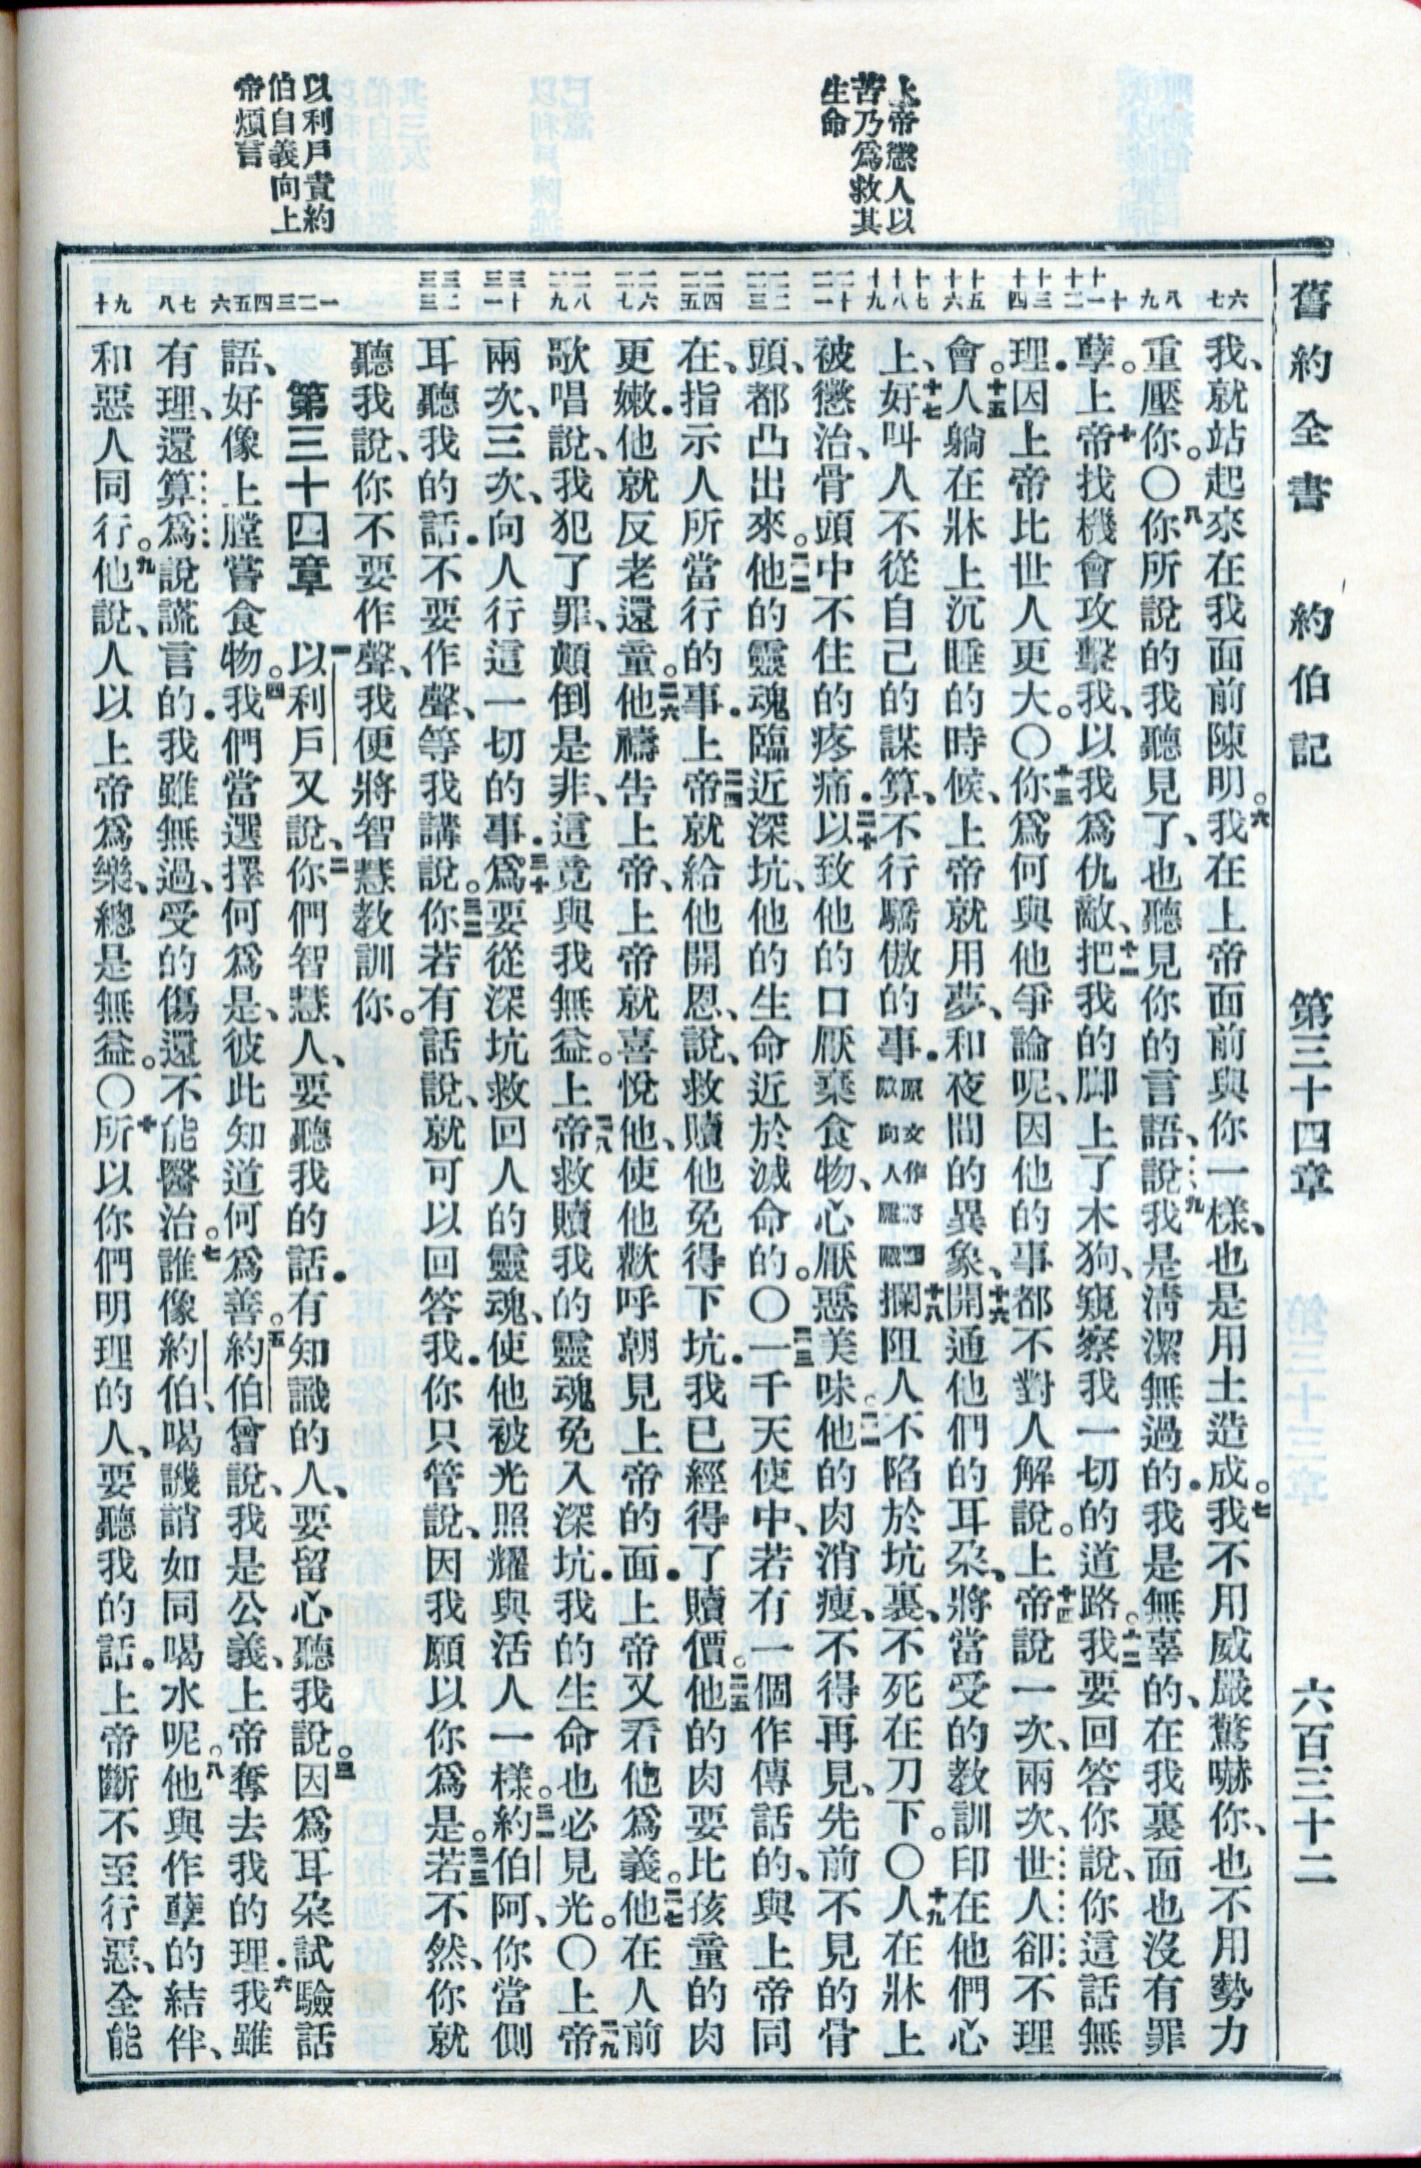 舊約全書　約伯記　第三十四章　六百三十二
上帝懲人以
苦乃爲救其
生命
以利戶責約
伯自義向上
帝煩言
六
七
八
九
十
十一
十二
十三
十四
十五
十六
十七
十八
十九
二十
二一
二二
二三
二四
二五
二六
二七
二八
二九
三十
三一
三二
三三
一
二
三
四
五
六
七
八
九
十
我、就站起來在我面前陳明。六我在上帝面前與你一樣、也是用土造成。七我不用威嚴驚嚇你、也不用勢力
重壓你。〇八你所說的我聽見了、也聽見你的言語、九說我是淸潔無過的．我是無辜的、在我裏面也沒有罪
孽。十上帝找機會攻擊我、以我爲仇敵、十一把我的脚上了木狗、窺察我一切的道路。十二我要回答你說、你這話無
理．因上帝比世人更大。〇十三你爲何與他爭論呢、因他的事都不對人解說。十四上帝說一次、兩次、世人卻不理
會。十五人躺在牀上沉睡的時候、上帝就用夢、和夜間的異象、十六開通他們的耳朶、將當受的敎訓印在他們心
上、十七好叫人不從自己的謀算、不行驕傲的事．原文作將驕傲向人隱藏十八攔阻人不陷於坑裏、不死在刀下。〇十九人在牀上
被懲治、骨頭中不住的疼痛．二十以致他的口厭棄食物、心厭惡美味。二一他的肉消瘦、不得再見、先前不見的骨
頭、都凸出來。二二他的靈魂臨近深坑、他的生命近於滅命的。〇二三一千天使中、若有一個作傳話的、與上帝同
在、指示人所當行的事．二四上帝就給他開恩、說、救贖他免得下坑．我已經得了贖價。二五他的肉要比孩童的肉
更嫩．他就反老還童。二六他禱吿上帝、上帝就喜悅他、使他歡呼朝見上帝的面．上帝又看他爲義。二七他在人前
歌唱說、我犯了罪、顛倒是非、這竟與我無益。二八上帝救贖我的靈魂免入深坑．我的生命也必見光。〇二九上帝
兩次、三次、向人行這一切的事．三十爲要從深坑救回人的靈魂、使他被光照耀與活人一樣。三一約伯阿、你當側
耳聽我的話．不要作聲、等我講說。三二你若有話說、就可以回答我．你只管說、因我願以你爲是。三三若不然、你就
聽我說、你不要作聲、我便將智慧敎訓你。
第三十四章　一以利戶又說、二你們智慧人、要聽我的話．有知識的人、要留心聽我說。三因爲耳朶試驗話
語、好像上膛嘗食物。四我們當選擇何爲是、彼此知道何爲善。五約伯曾說、我是公義、上帝奪去我的理．六我雖
有理、還算爲說謊言的．我雖無過、受的傷還不能醫治。七誰像約伯、喝譏誚如同喝水呢。八他與作孽的結伴、
和惡人同行。九他說、人以上帝爲樂、總是無益。〇十所以你們明理的人、要聽我的話．上帝斷不至行惡、全能